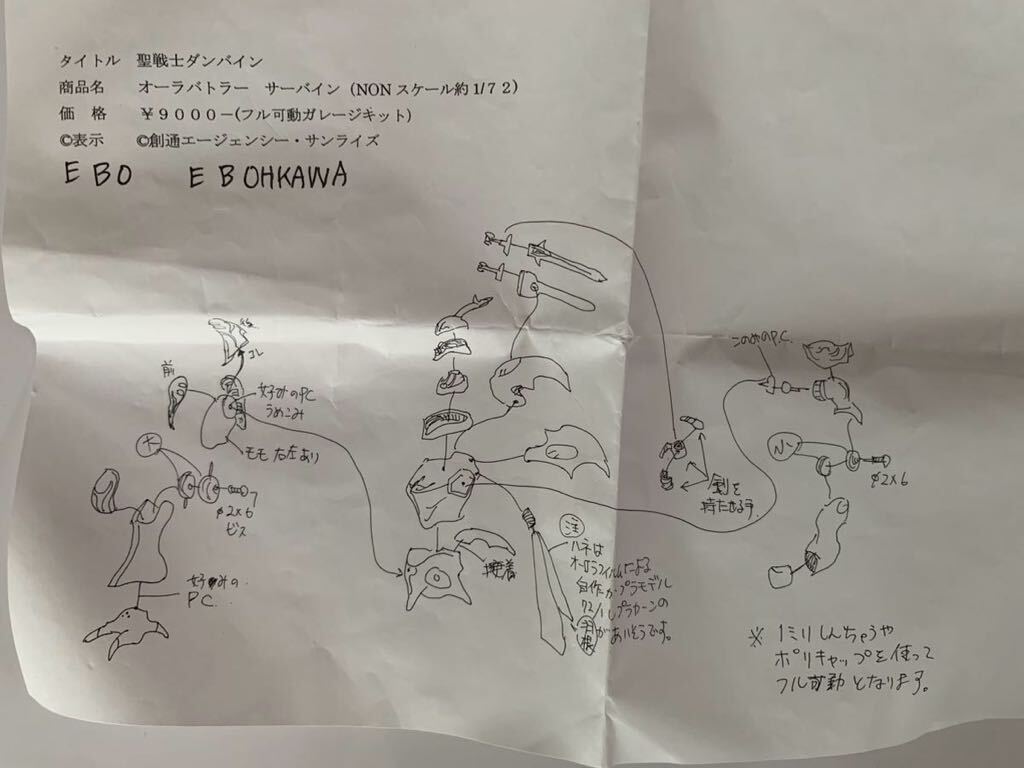 タイトル 聖戦士ダンバイン
商品名 オーラバトラー サーバイン（NONスケール約1/72）
価 格 ￥9000－(フル可動ガレージキット)
©表示 ©創通エージェンシー・サンライズ
EBO EBOHKAWA
前
後
コレ
好みのPC
うめこみ
モモ 右左あり
大
φ2×6
ビス
好みの
PC.
接着
注
ハネは
オーロラフィルムによる
自作か、プラモデル
の
羽根
があいそうです。
剣を
持たせる手
このみのP.C.
小
φ2×6
※ 1ミリしんちゅうや
ポリキャップを使って
フル可動となります。